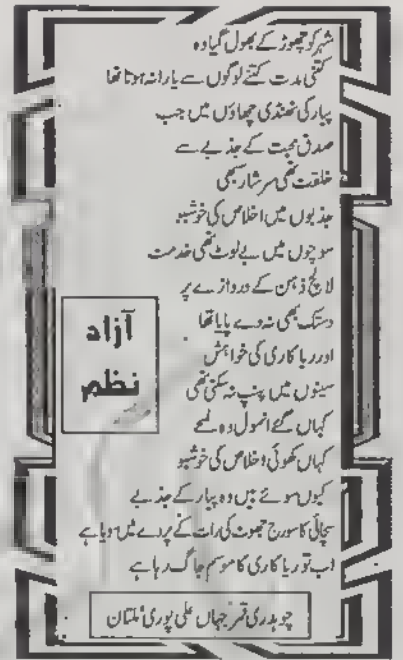 شہر کو چھوڑ کے بھول گیا وہ
کتنی مدت کتنے لوگوں سے یارانہ ہوتا تھا
پیار کی ٹھنڈی چھاؤں میں جب
صدق محبت کے جذبے سے
خلقت تھی سرشار کبھی
جذبوں میں اخلاص کی خوشبو
سوچوں میں بے لوث تھی خدمت
لالچ ذہن کے دروازے پر
دستک بھی نہ دے پایا تھا
اور ریا کاری کی خواہش
سینوں میں پنپ نہ سکتی تھی
کہاں گئے انمول وہ لمحے
کہاں کھوئی اخلاص کی خوشبو
کیوں سوئے ہیں وہ پیار کے جذبے
سچائی کا سورج جھوٹ کی رات کے پردے میں سویا ہے
اب تو ریا کاری کا موسم جاگ رہا ہے
آزاد
نظم
چوہدری قمر جہاں علی پوری ملتان